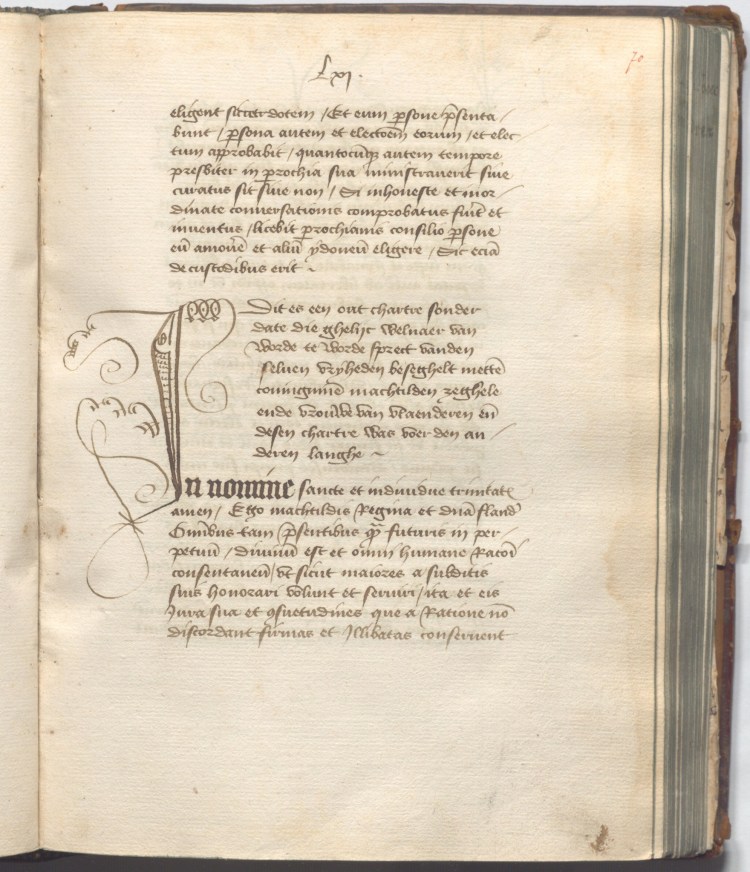 Lxj.
70
eligent sacerdotem / Et eum psone psenta
bunt / psona autem et electoem eorum / et elec
tum approbabit / quantocumq autem tempore
presbiter in prochia sua ministraverit siue
curatus sit siue non / Si inhoneste et inor
dinate conuersationis comprobatus fuit et
inuentus / licebit prochianis consilio psone
eu amoue et aliu ydoneu eligere / Sic ecia
de custodibus erit ~
Dit es een out chartre sonder
date die ghelijc Welnaer van
Worde te Worde sprect vanden
seluen vryheden beseghelt mette
coninginne machtilden zeghele
ende vrouwe van vlaenderen en
desen chartre Was voer den an
deren langhe ~
In nomine sancte et indiuidue trinitat
amen / Ego machtildis Regina et dna fland
Omibus tam psentibus qua futuris in per
petuu / diuinu est et omni humane Racoi
consentaneu / vt sicut maiores a subditis
suis honorari volunt et seruiri / ita et eis
Jura sua et osuetudines que a Ratione no
discordant firmas et Jllibatas conseruent